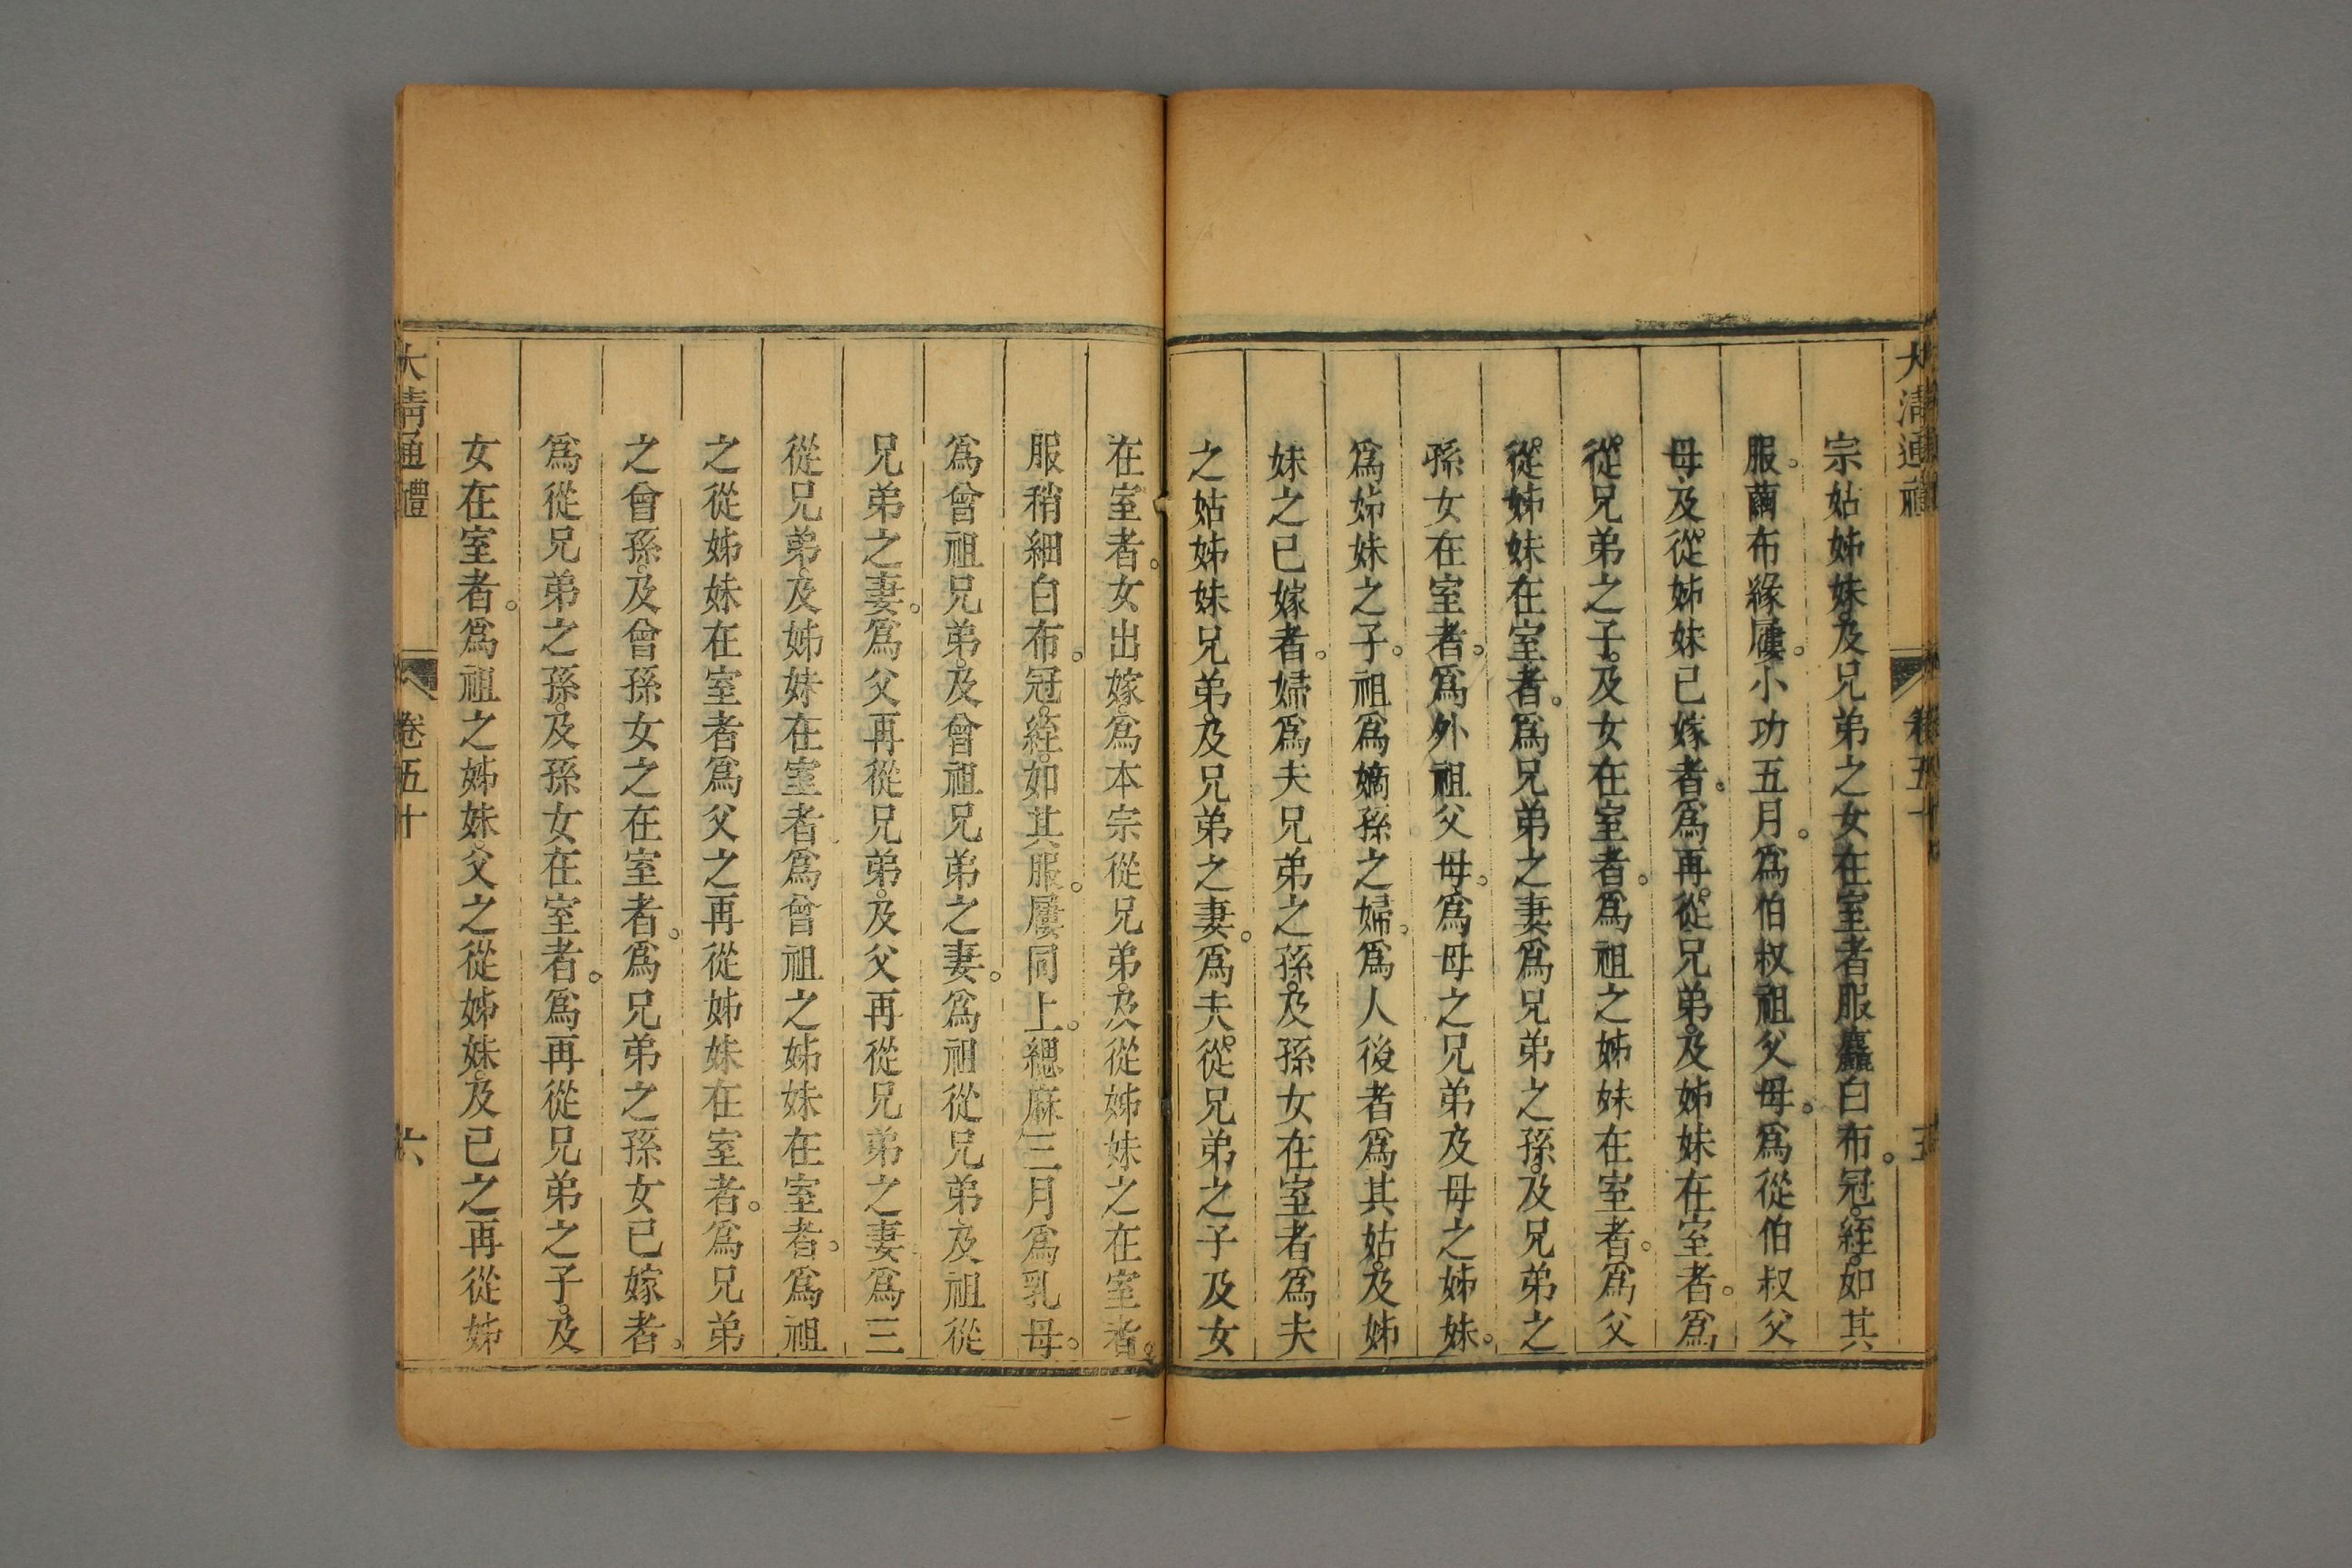 大清通禮 卷五十 五
宗姑姊妹。及兄弟之女在室者服麤白布冠。絰。如其
服。繭布緣屨。小功五月。爲伯叔祖父母。爲從伯叔父
母。及從姊妹已嫁者。爲再從兄弟。及姊妹在室者。爲
從兄弟之子。及女在室者。爲祖之姊妹在室者。爲父
從姊妹在室者。爲兄弟之妻爲兄弟之孫。及兄弟之
孫女在室者。爲外祖父母。爲母之兄弟及母之姊妹。
爲姊妹之子。祖爲嫡孫之婦。爲人後者爲其姑。及姊
妹之已嫁者。婦爲夫兄弟之孫。及孫女在室者爲夫
之姑姊妹兄弟。及兄弟之妻。爲夫從兄弟之子及女
在室者。女出嫁。爲本宗從兄弟。及從姊妹之在室者。
服稍細白布。冠。絰。如其服。屨同上。緦麻三月爲乳母。
爲曾祖兄弟。及曾祖兄弟之妻。爲祖從兄弟及祖從
兄弟之妻。爲父再從兄弟。及父再從兄弟之妻爲三
從兄弟。及姊妹在室者爲曾祖之姊妹在室者。爲祖
之從姊妹在室者爲父之再從姊妹在室者。爲兄弟
之曾孫。及曾孫女之在室者。爲兄弟之孫女已嫁者。
爲從兄弟之孫。及孫女在室者。爲再從兄弟之子。及
女在室者。爲祖之姊妹。父之從姊妹。及已之再從姊
大清通禮 卷五十 六